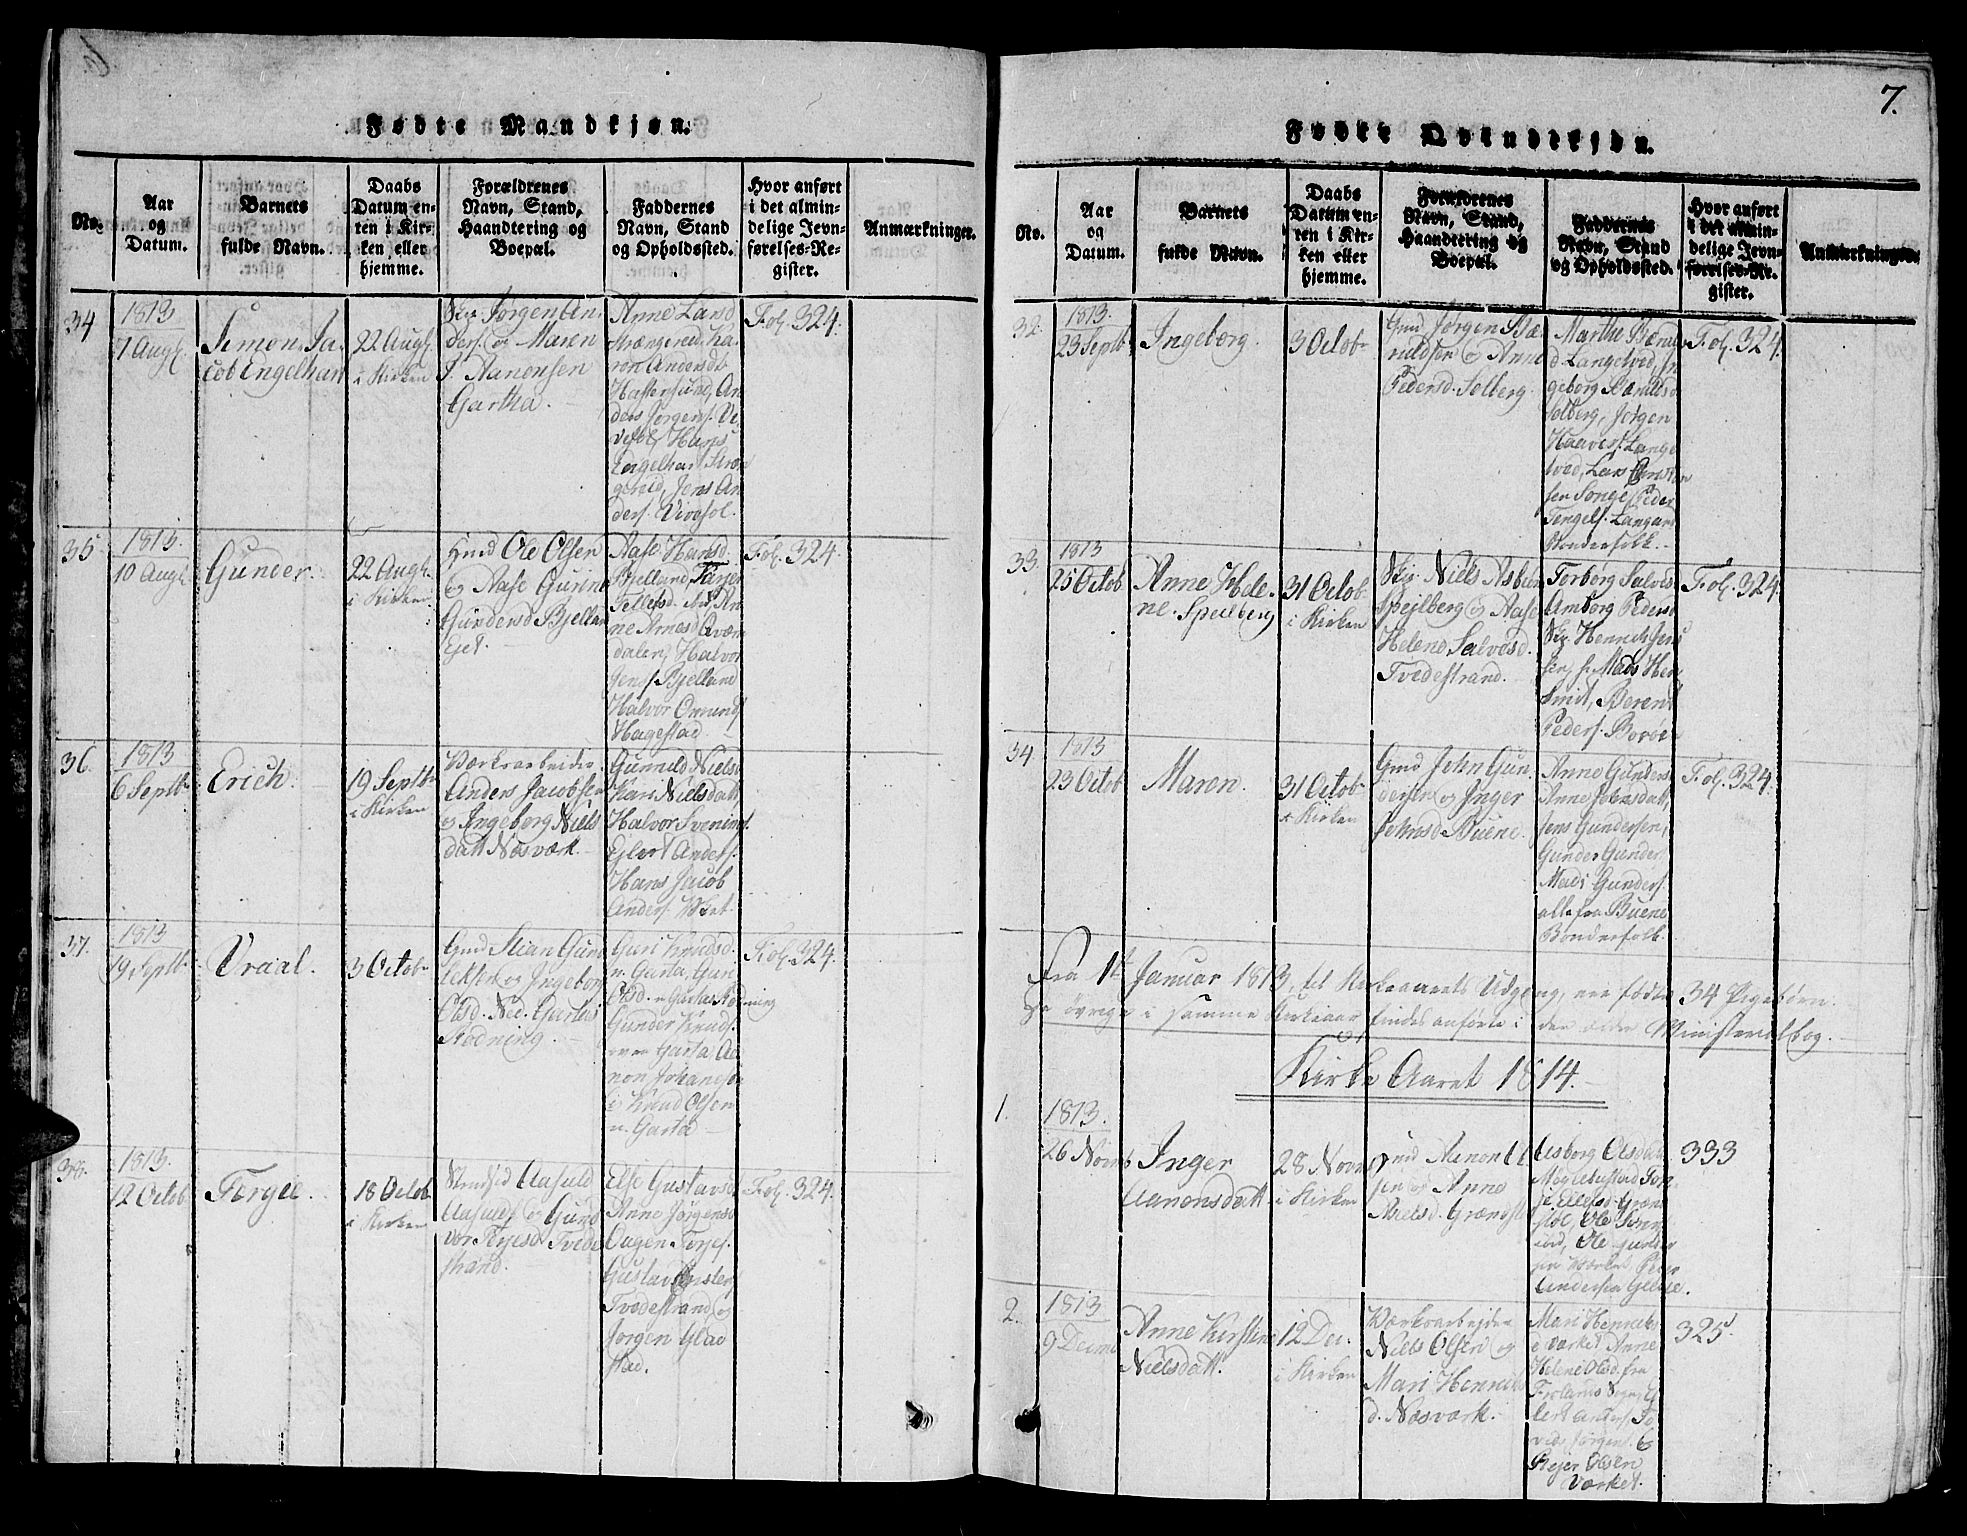 Fødte Mandkjøn.
No.
Aar
og
Datum.
Barnets
fulde Navn.
Daabs
Datum en-
ten i Kir-
ken eller
hjemme.
Forældrenes
Navn, Stand,
Haandtering og
Boepæl.
Faddernes
Navn, Stand
og Opholdssted.
Hvor anført
i det almin-
delige Jevn-
førelses-Re-
gister.
Anmærkninger.
34
1813
7 Augs.
Simon Ja-
cob Engelhart
22 Augs.
i Kirken
Jørgen An-
ders. og Maren
J. Aanonsen
Gartha.
Anne Lars d
Strængereid, Ka-
ren Andersdt
Hastensund, An-
ders Jørgens. Vi-
vestøl, Hans
Engelhart Stræn
gereid, Jens An-
ders. Vivestøl.
Fol. 324.
35
1813.
10 Augs.
Gunder.
22 Augs.
i Kirken
Gmd Ole Olsen
og Aase Gurine
Gundersd Bjelland
Ejet.
Aase Hansd.
Bjelland, Tarjer
Tellefsd. An-
ne Arnesd Qværn
dalen, Halvor
Jens. Bjelland
Halvor Omunds.
Hagestad.
Fol. 324.
36.
1813
6 Septbr
Erich.
19 Septbr
i Kirken
Værksarbeider
Anders Jacobsen
og Ingeborg Niels
datt Næsværk.
Gunnild Nielsd
Kari Nielsdatt,
Halvor Svenings.
Ejlert Anders.
Hans Jacob
Anders.
37.
1813
19 Septbr
Vraal.
3 Octobr
Gmd Stian Gund
og Ingeborg
Olsd. Ned. Gartas
Rødning.
Guri Knudsd.
n. Garta, Guri
Olsd. n. Gartas Rødning
Gunder Knuds.
oven Garta, Aa-
non Johanesen
og Knud Olsen
n. Garta
Fol. 324.
38.
1813.
12 Octob
Torgie.
18 Octob.
i Kirken
Strandsid Aasuld
Aasulds. og Gund
vor Terjesd. Tvede
strand.
Else Gustavsd
Anne Jørgensd
Ougen Torjes.
Gustav
Tvedestrand og
Jørgen Glad
stad.
Fol. 324.
7.
Fødte Qvindekjøn.
No.
Aar
og
Datum.
Barnets
fulde Navn.
Daabs
Datum en-
ten i Kir-
ken eller
hjemme.
Forældrenes
Navn, Stand,
Haandtering og
Boepæl.
Faddernes
Navn, Stand
og Opholdssted.
Hvor anført
i det almin-
delige Jevn-
førelses-Re-
gister.
Anmærkninger.
32.
1813.
23 Septb
Ingeborg.
3 Octob
Gmd Jørgen
og Anne
Pedersd. Solberg
Marthe
d Langetved, In
geborg
Solberg, Jørgen
Haavers. Lange
tved, Lars
sen Songe, Peder
Tengels. Langan
Bonderfolk.
Fol. 324.
33.
1813
25 Octob
Anne Hele-
ne Speilberg
31 Octob
i Kirken
Niels Asbiør
Spejlberg og Aase
Helene Salvesd.
Tvedestrand.
Torborg Salves
Amborg Peders
Henrich Jens
sen, Mads Hen
Smit, Berent
Peders. Borøe
Fol. 324.
34
1813
23 Octob
Maren.
31 Octob
i Kirken
Gmd John Gun
dersen og Inger
Johnsd Buene.
Anne Gunders
Anne Johnsdatt,
Jens Gundersen,
Gunder Gunders.
Mads Gunders.
alle fra Buene
Bonderfolk.
Fol. 324.
Fra 1te Januar 1813, til Kirkeaarets Udgang, ere fødte 34 Pigebørn.
De øvrige i samme Kirkeaar findes anførte i den ældre Ministerialbog.
Kirke Aaret 1814.
1.
1813.
26 Novb
Inger
Aanonsdatt
28 Nov
i Kirken
Gmd Aanon
sen og Anne
Nielsd. Grændstøl
Asborg Olsdatt
Ole
Andersen
333
2.
1813
9 Decmb
Anne Kirstine
Nielsdatt.
12 Dec.
i Kirken
Værksarbejder
Niels Olsen og
Mari Henrichs
d. Næsværk.
Mari Henrichs
d Værket Anne
Helene Olsd. fra
Jørgen
Rejer Olsen
Værket.
325.